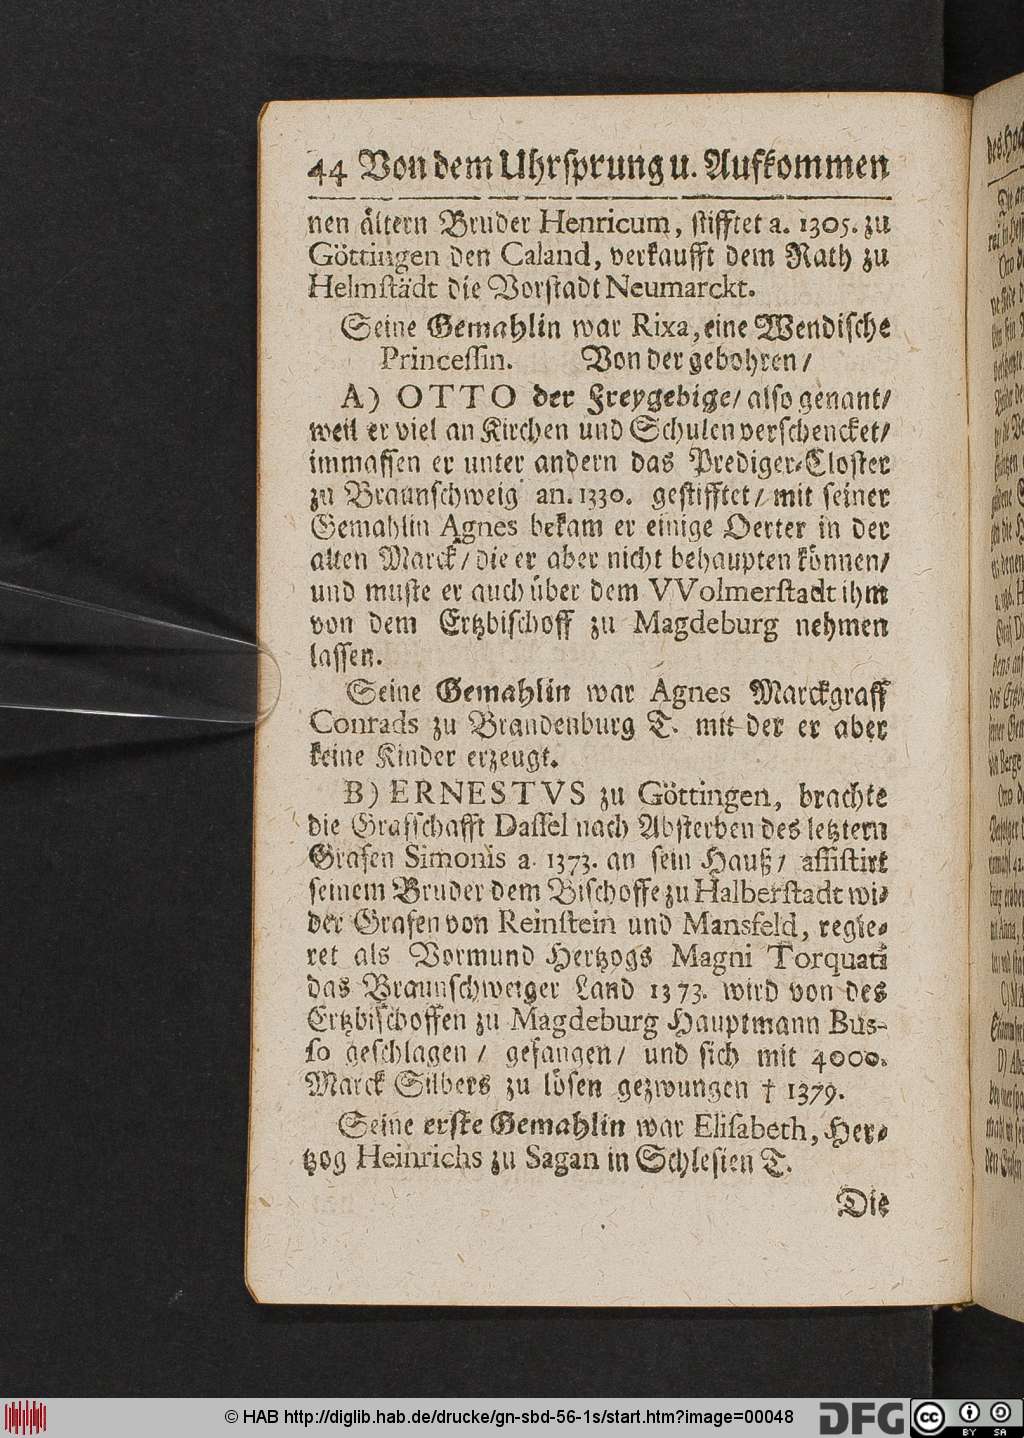 44 Von dem Uhrsprung u. Aufkommen
nen ältern Bruder Henricum, stifftet a. 1305. zu
Göttingen den Caland, verkaufft dem Rath zu
Helmstädt die Vorstadt Neumarckt.
Seine Gemahlin war Rixa, eine Wendische
Princessin. Von der gebohren/
A) OTTO der Freygebige/ also genant/
weil er viel an Kirchen und Schulen verschencket/
immassen er unter andern das Prediger-Closter
zu Braunschweig an. 1330. gestifftet/ mit seiner
Gemahlin Agnes bekam er einige Oerter in der
alten Marck/ die er aber nicht behaupten können/
und muste er auch über dem VVolmerstadt ihm
von dem Ertzbischoff zu Magdeburg nehmen
lassen.
Seine Gemahlin war Agnes Marckgraff
Conrads zu Brandenburg T. mit der er aber
keine Kinder erzeugt.
B) ERNESTVS zu Göttingen, brachte
die Grafschafft Dassel nach Absterben des letztern
Grafen Simonis a. 1373. an sein Hauß/ assistirt
seinem Bruder dem Bischoffe zu Halberstadt wi-
der Grafen von Reinstein und Mansfeld, regie-
ret als Vormund Hertzogs Magni Torquati
das Braunschweiger Land 1373. wird von des
Ertzbischoffen zu Magdeburg Hauptmann Bus-
so geschlagen/ gefangen/ und sich mit 4000.
Marck Silbers zu lösen gezwungen † 1379.
Seine erste Gemahlin war Elisabeth, Her-
tzog Heinrichs zu Sagan in Schlesien T.
Die
© HAB http://diglib.hab.de/drucke/gn-sbd-56-1s/start.htm?image=00048
DFG
cc BY SA